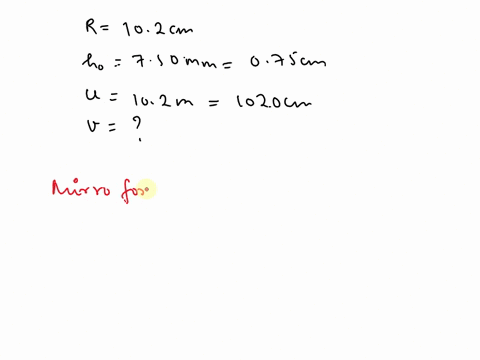 R = 10.2 cm
ho = 7.50 mm = 0.75 cm
u = 10.2 m = 1020 cm
v = ?
Mirro for